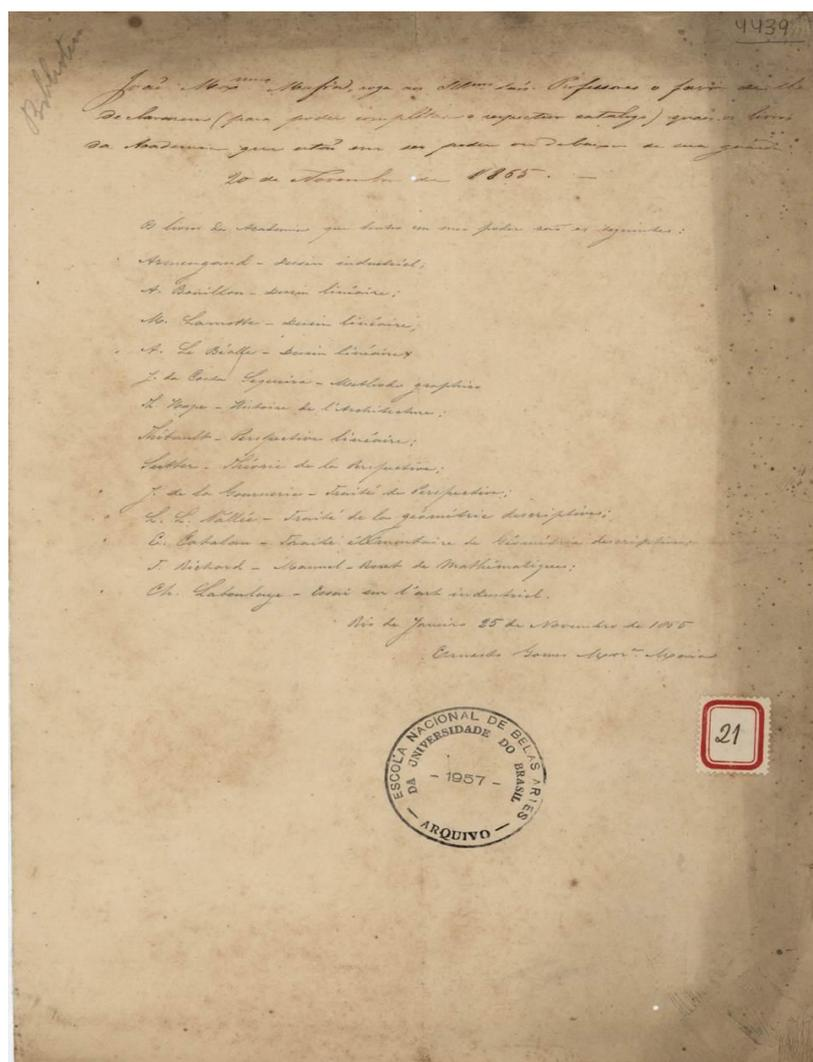 4439
Bibliotheca
João Max.mno Mafra, roga aos Illmos Snrs. Professores o favor de lhe
declararem (para poder completar o respectivo catalogo) quaes os livros
da Academia que estão em seu poder ou debaixo de sua guarda.
20 de Novembro de 1865. —
Os livros da Academia que tenho em meu poder são os seguintes:
Armengaud - Dessin industriel;
A. Bouillon - Dessin linéaire;
M. Lamotte - Dessin linéaire;
A. Le Béalle - Dessin linéaire
J. da Costa Sequeira - Methodo graphico
Th. Hope - Histoire de l'Architecture;
Thibault - Perspective linéaire;
Sutter - Théorie de la Perspective;
J. de la Gournerie - Traité de Perspective;
L. L. Vallée - Traité de la géométrie descriptive;
E. Catalan - Traité élémentaire de Géométrie descriptive;
T. Richard - Manuel-Roret de Mathématiques;
Ch. Laboulaye - Essai sur l'art industriel.
Rio de Janeiro 25 de Novembro de 1865
Ernesto Gomes Mor.ra Maia
21
ESCOLA NACIONAL DE BELAS ARTES
DA UNIVERSIDADE DO BRASIL
- 1957 -
— ARQUIVO —